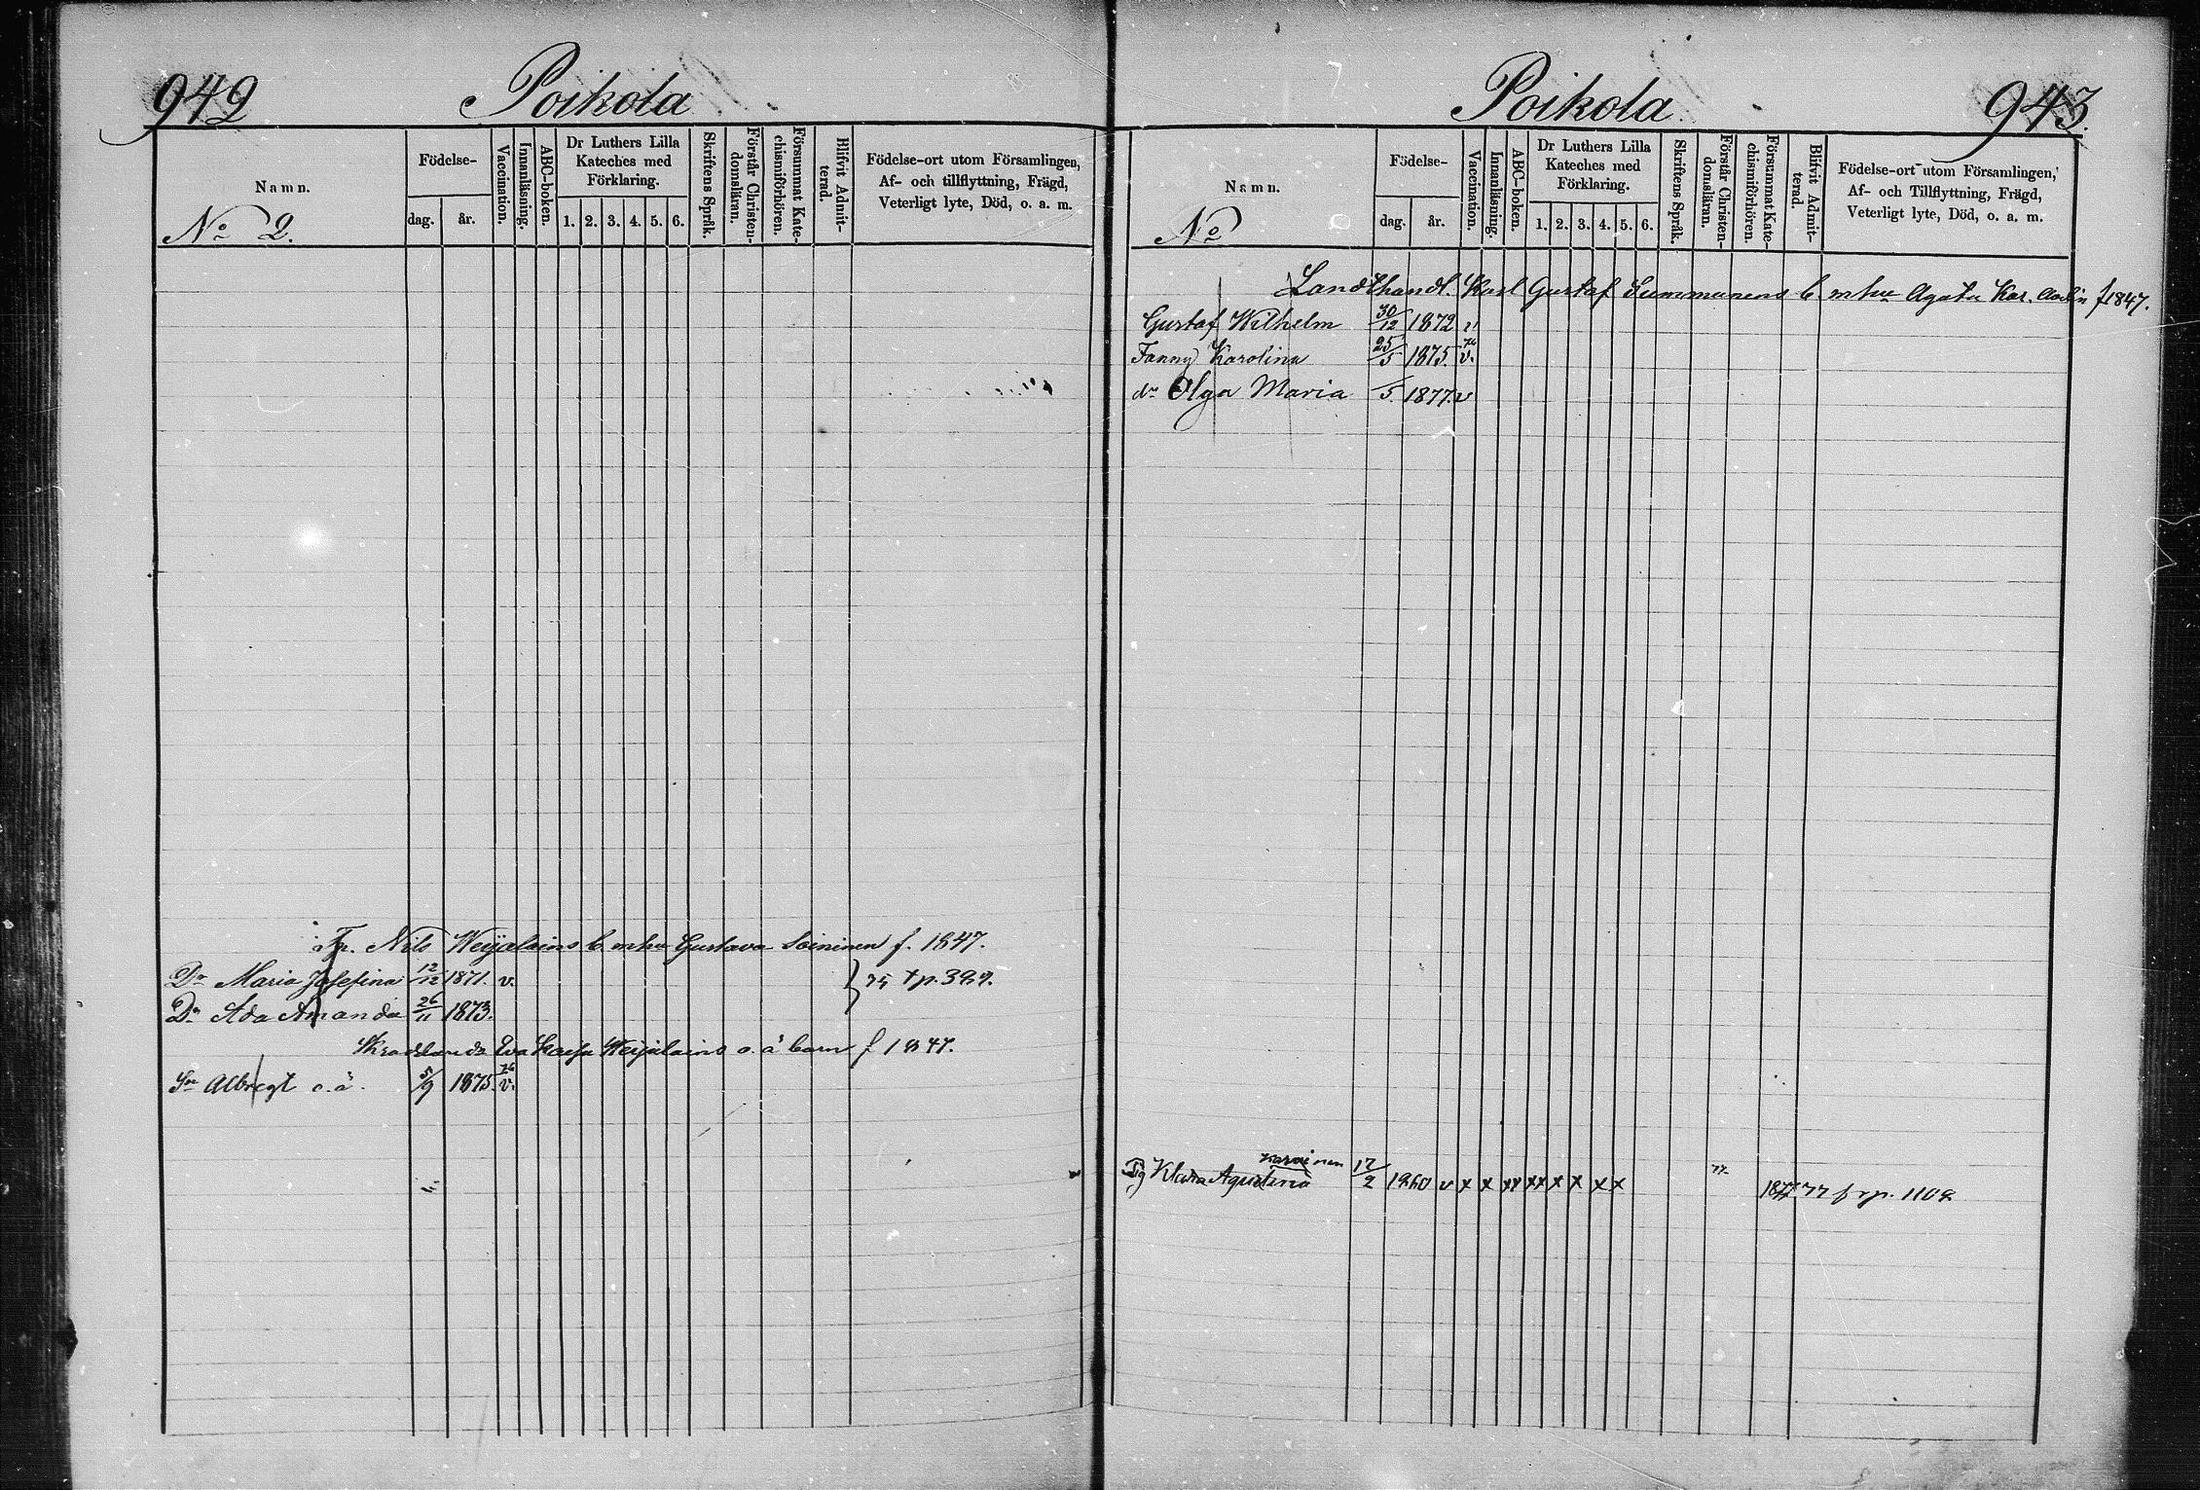 942 Poikola
Namn.
No 2.
Födelse-
dag. år.
Vaccination.
Innanläsning.
ABC-boken.
Dr Luthers Lilla
Kateches med
Förklaring.
1. 2. 3. 4. 5. 6.
Skriftens Språk.
Förstår Christen-
domsläran.
Försummat Kate-
chismiförhören.
Blifvit Admit-
terad.
Födelse-ort utom Församlingen,
Af- och tillflyttning, Frägd,
Veterligt lyte, Död, o. a. m.
Nils Weijalains b. m hu Gustava Soininen f. 1847.
Dr Maria Josefina 12/12 1871. v. 75 tp. 399.
Dr Ada Amanda 26/11 1873.
Eva Kaisa Weijalains o. ä barn f 1847.
Sn Albregt o. ä. 5/9 1875. 76 v.
Poikola 943.
Namn.
No
Födelse-
dag. år.
Vaccination.
Innanläsning.
ABC-boken.
Dr Luthers Lilla
Kateches med
Förklaring.
1. 2. 3. 4. 5. 6.
Skriftens Språk.
Förstår Christen-
domsläran.
Försummat Kate-
chismiförhören.
Blifvit Admit-
terad.
Födelse-ort utom Församlingen,
Af- och Tillflyttning, Frägd,
Veterligt lyte, Död, o. a. m.
Landthandl. Karl Gustaf Summanens b. m hu Agata Kar. f 1847.
Gustaf Wilhelm 30/12 1872 v
Fanny Karolina 25/5 1875. 76 v.
dr Olga Maria 5 1877. v
Karvinen
Pg Klara Agustina 17/2 1860 v x x xx xx x x x x 77 1877 77 f rp. 1109.